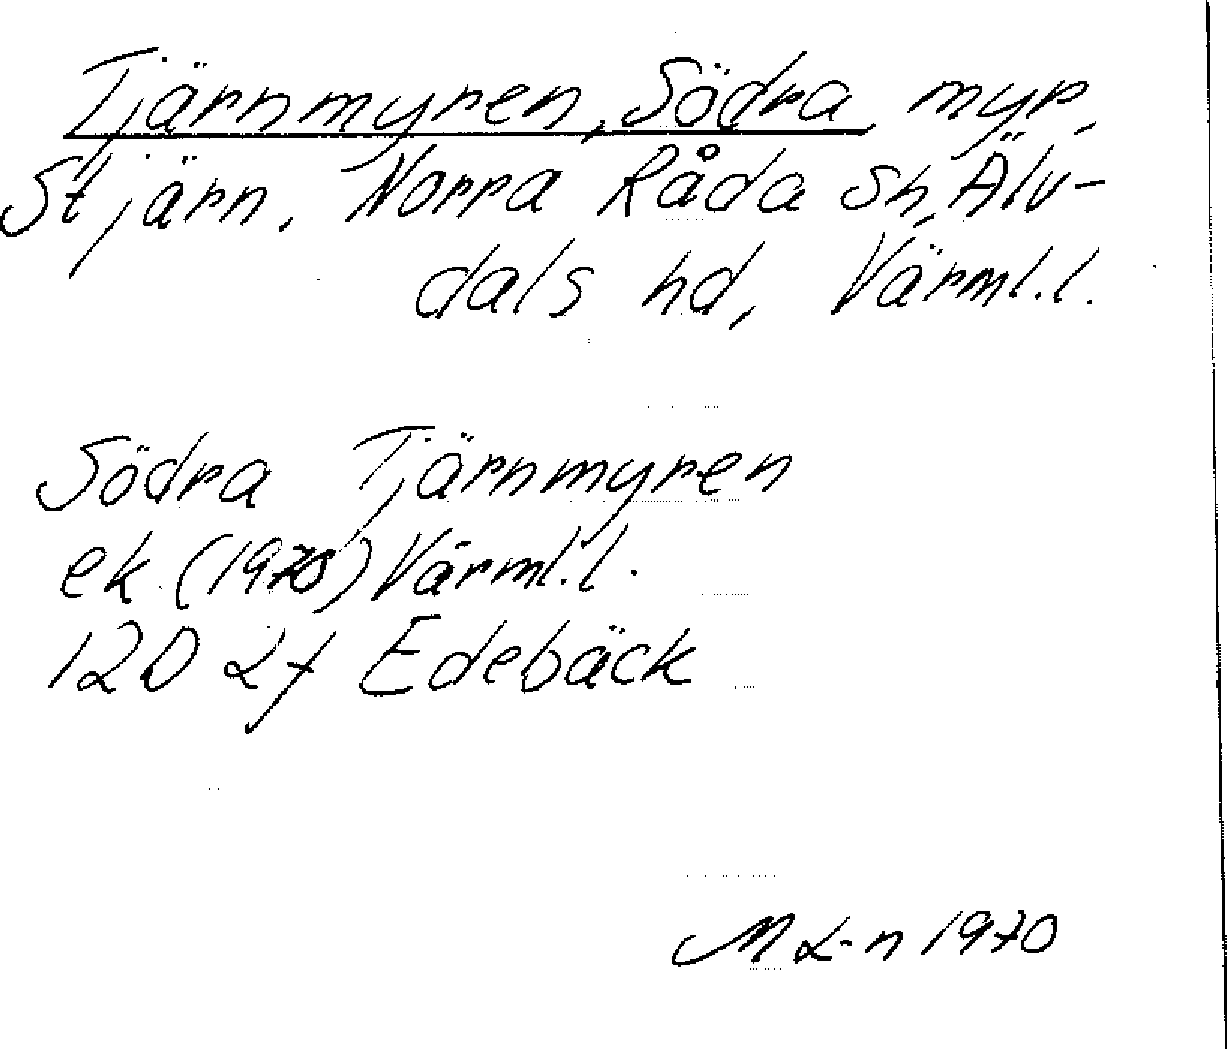 Tjärnmyren, Södra, myr,
Stjärn. Norra Råda sn, Älv-
dals hd, Värml.l.
Södra Tjärnmyren
ek (1970) Värml.l.
12D 2f Edebäck
M L-n 1970